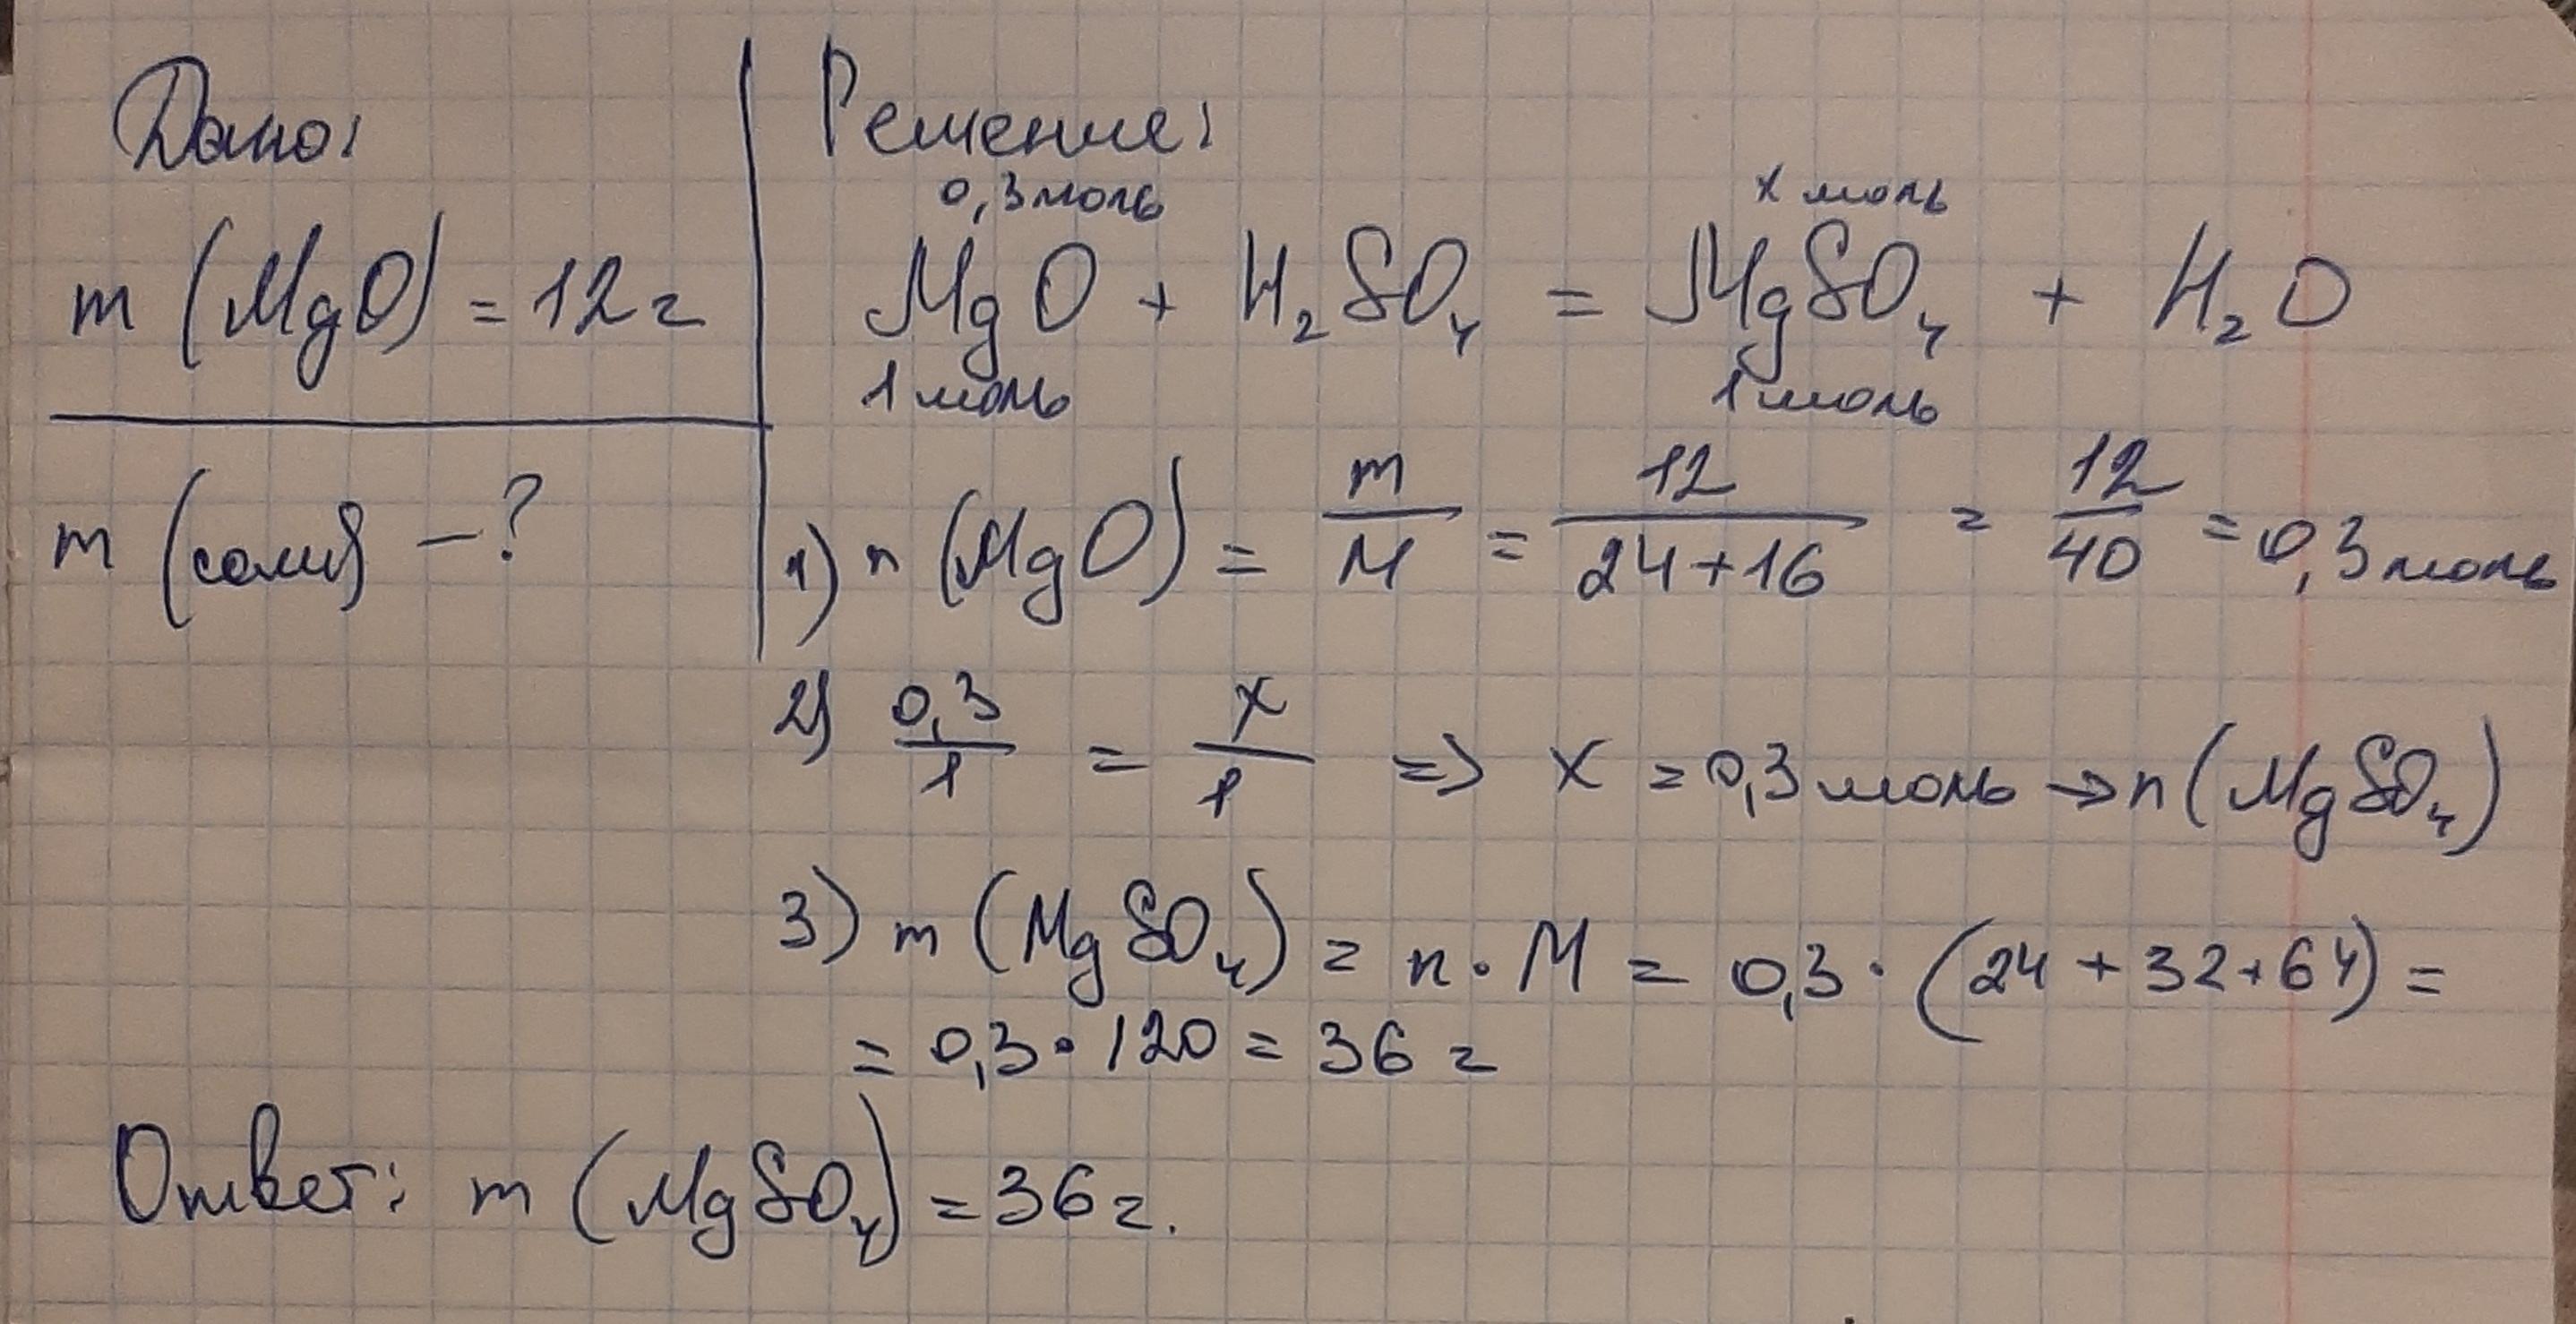 Дано:
m (MgO) = 12 г
m (соли) - ?
Решение:
0,3 моль x моль
MgO + H₂SO₄ = MgSO₄ + H₂O
1 моль 1 моль
1) n (MgO) = m/M = 12/(24+16) = 12/40 = 0,3 моль
2) 0,3/1 = x/1 => x = 0,3 моль → n (MgSO₄)
3) m (MgSO₄) = n · M = 0,3 · (24 + 32 + 64) =
= 0,3 · 120 = 36 г
Ответ: m (MgSO₄) = 36 г.